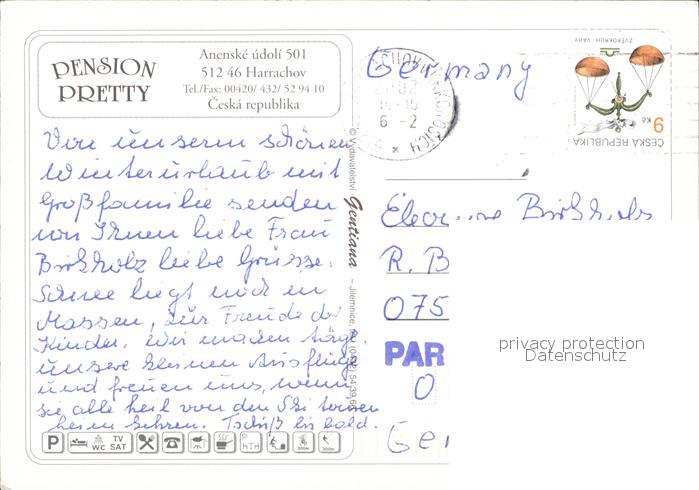 PENSION
PRETTY
Anenské údolí 501
512 46 Harrachov
Tel./Fax: 00420/ 432/ 52 94 10
Česká republika
Germany
ZVĚROKRUH VÁHY
9 Kč
ČESKÁ REPUBLIKA
© Vydavatelství Gentiana – Jilemnice,
Von unserm schönen
Winterurlaub mit
Großfamilie senden
wir Ihnen liebe Frau
Birkholz liebe Grüsse.
Schnee liegt noch in
Massen, zur Freude der
Kinder. Wir machen
unsere kleinen Ausflüge
und freuen uns, wenn
sie alle heil von den Ski touren
heim kehren. Tschüß bis bald.
Birkholz
R. B
075
PAR
0
Ger
privacy protection
Datenschutz
P
WC
TV
SAT